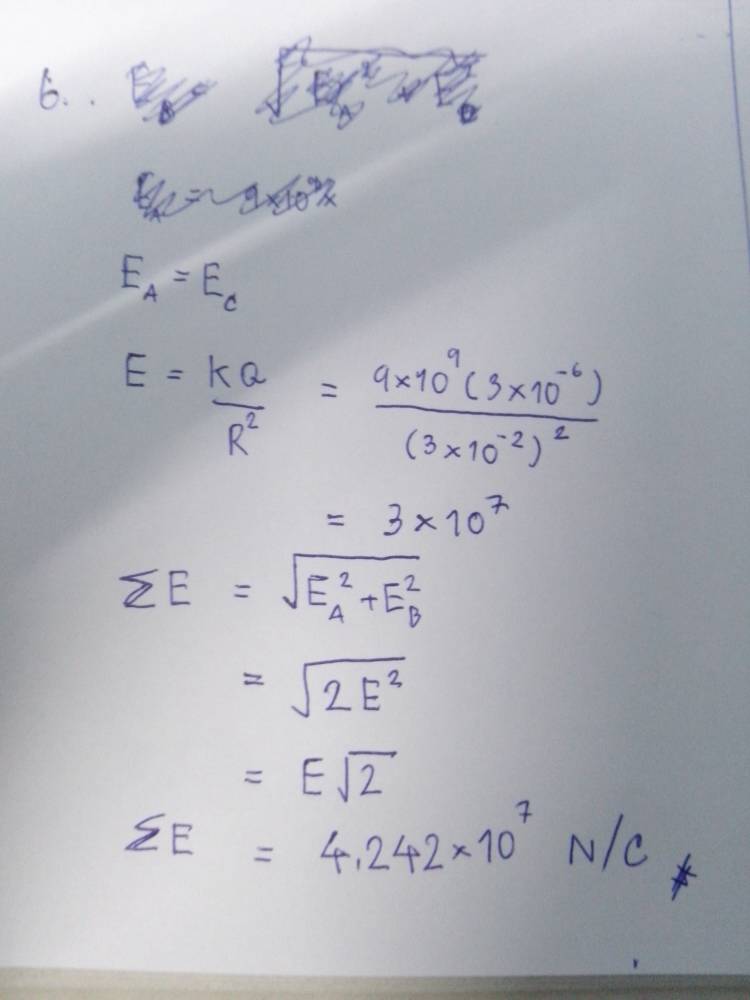 6.
E_A = E_C
E = KQ/R² = 9×10⁹(3×10⁻⁶)/(3×10⁻²)²
= 3×10⁷
ΣE = √(E_A² + E_B²)
= √(2E²)
= E√2
ΣE = 4.242×10⁷ N/C